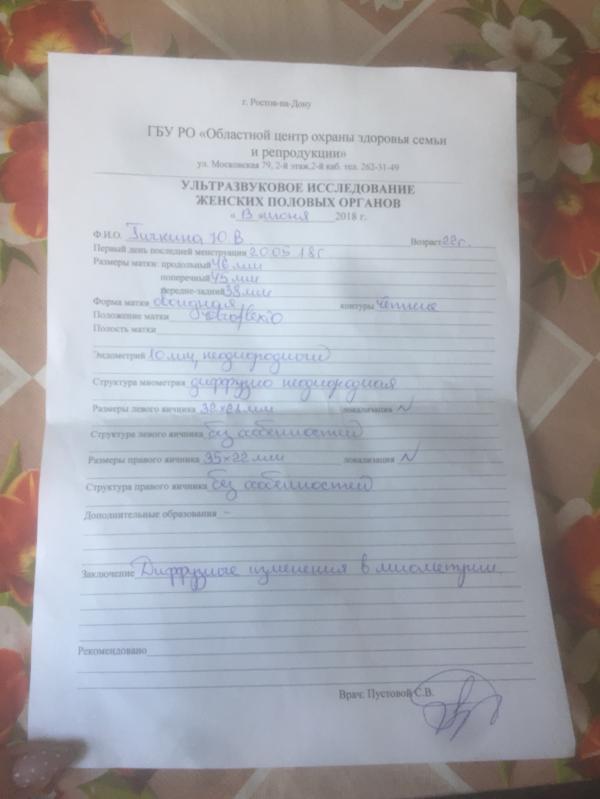 г. Ростов-на-Дону
ГБУ РО «Областной центр охраны здоровья семьи
и репродукции»
ул. Московская 79, 2-й этаж,2-й каб. тел. 262-31-49
УЛЬТРАЗВУКОВОЕ ИССЛЕДОВАНИЕ
ЖЕНСКИХ ПОЛОВЫХ ОРГАНОВ
« 13 июня 2018 г.
Ф.И.О. Ю.В Возраст 22г.
Первый день последней менструации 20.05 18г
Размеры матки: продольный 46 мм
поперечный 45 мм
передне-задний 38 мм
Форма матки овоидная контуры четкие
Положение матки retroflexio
Полость матки
Эндометрий 10 мм, неоднородный
Структура миометрия диффузно неоднородная
Размеры левого яичника мм локализация N
Структура левого яичника без особенностей
Размеры правого яичника 35×22 мм локализация N
Структура правого яичника без особенностей
Дополнительные образования –
Заключение Диффузные изменения в миометрии.
Рекомендовано
Врач: Пустовой С.В.